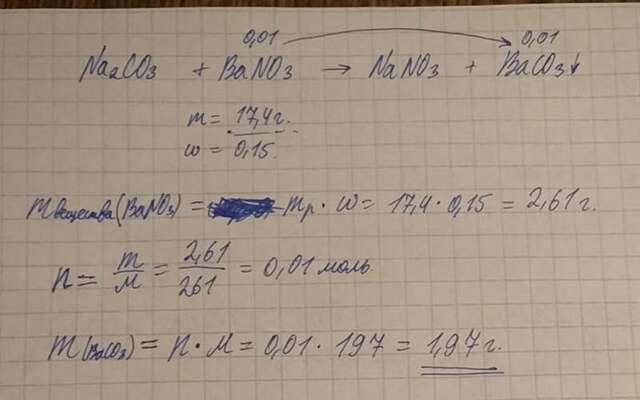 0,01 0,01
Na₂CO₃ + BaNO₃ → NaNO₃ + BaCO₃↓
m = 17,4 г.
w = 0,15.
m вещества (BaNO₃) = mр · w = 17,4 · 0,15 = 2,61 г.
n = m/M = 2,61/261 = 0,01 моль.
m (BaCO₃) = n · M = 0,01 · 197 = 1,97 г.